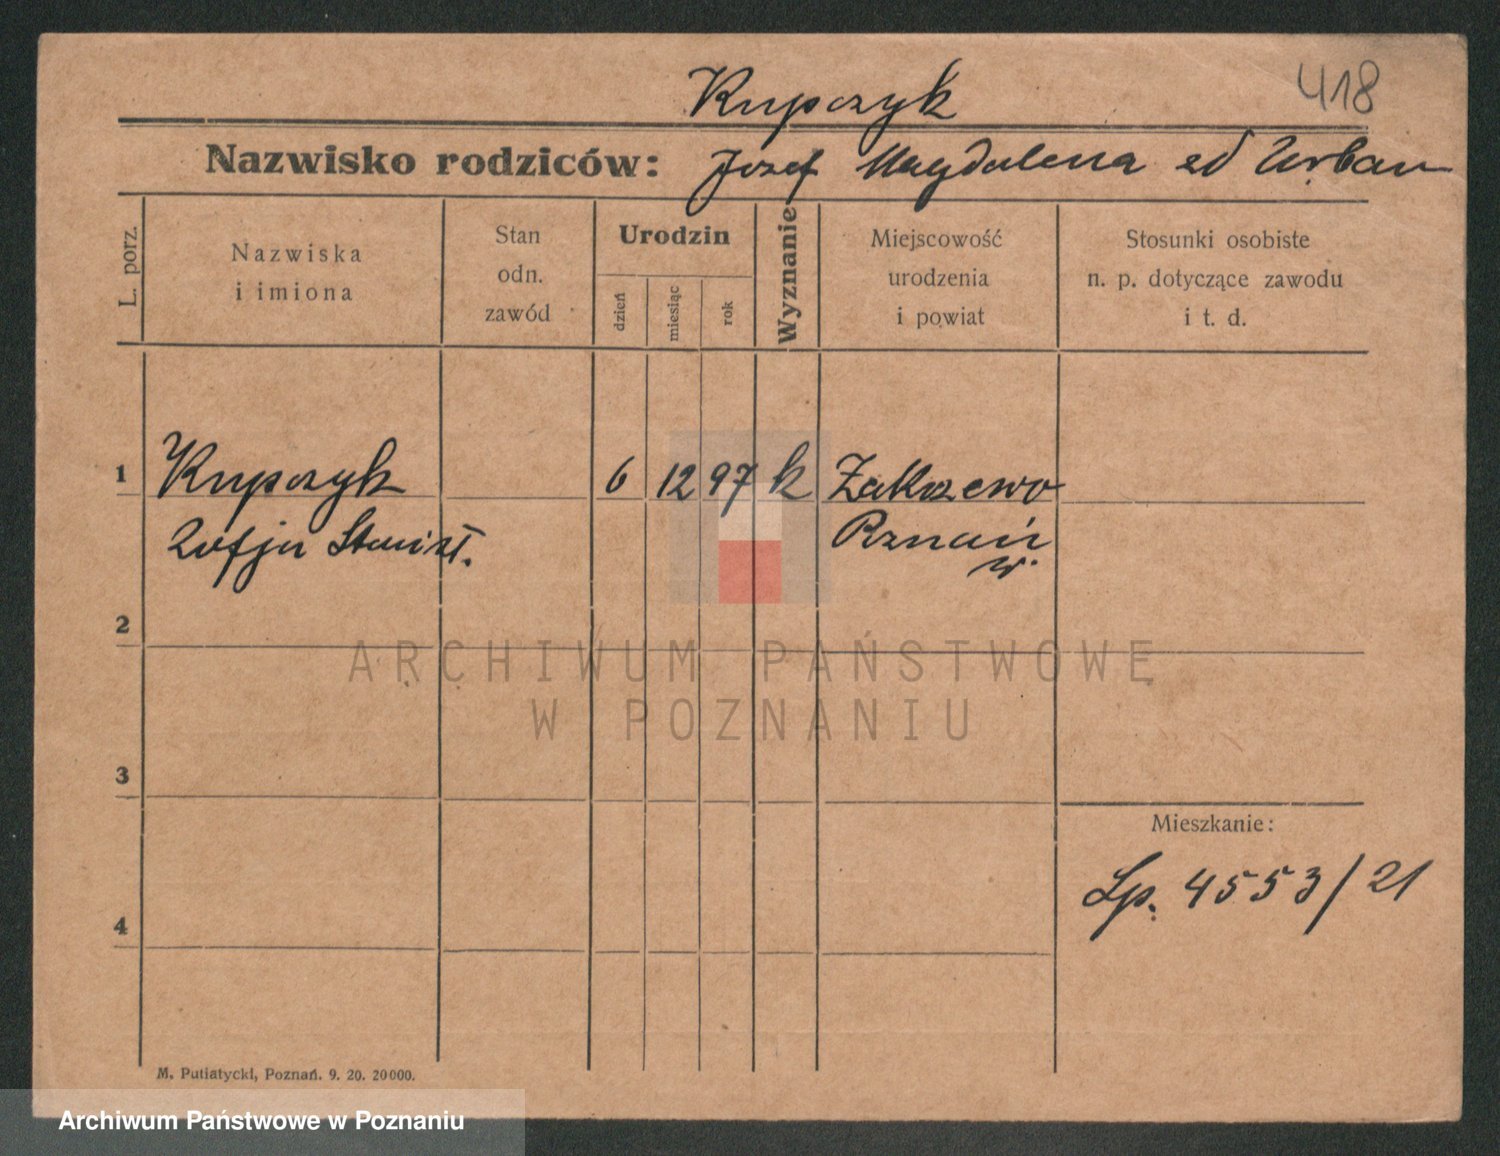 Kupczyk 418
Nazwisko rodziców: Józef Magdalena zd Urban
L. porz.
Nazwiska
i imiona
Stan
odn.
zawód
Urodzin
dzień
miesiąc
rok
Wyznanie
Miejscowość
urodzenia
i powiat
Stosunki osobiste
n. p. dotyczące zawodu
i t. d.
1 Kupczyk 6 12 97 k Zakrzewo
Zofja Stanisł. Poznań
w.
2
ARCHIWUM PAŃSTWOWE
W POZNANIU
3
Mieszkanie:
Lp. 4553/21
4
M. Putiatycki, Poznań. 9. 20. 20000.
Archiwum Państwowe w Poznaniu